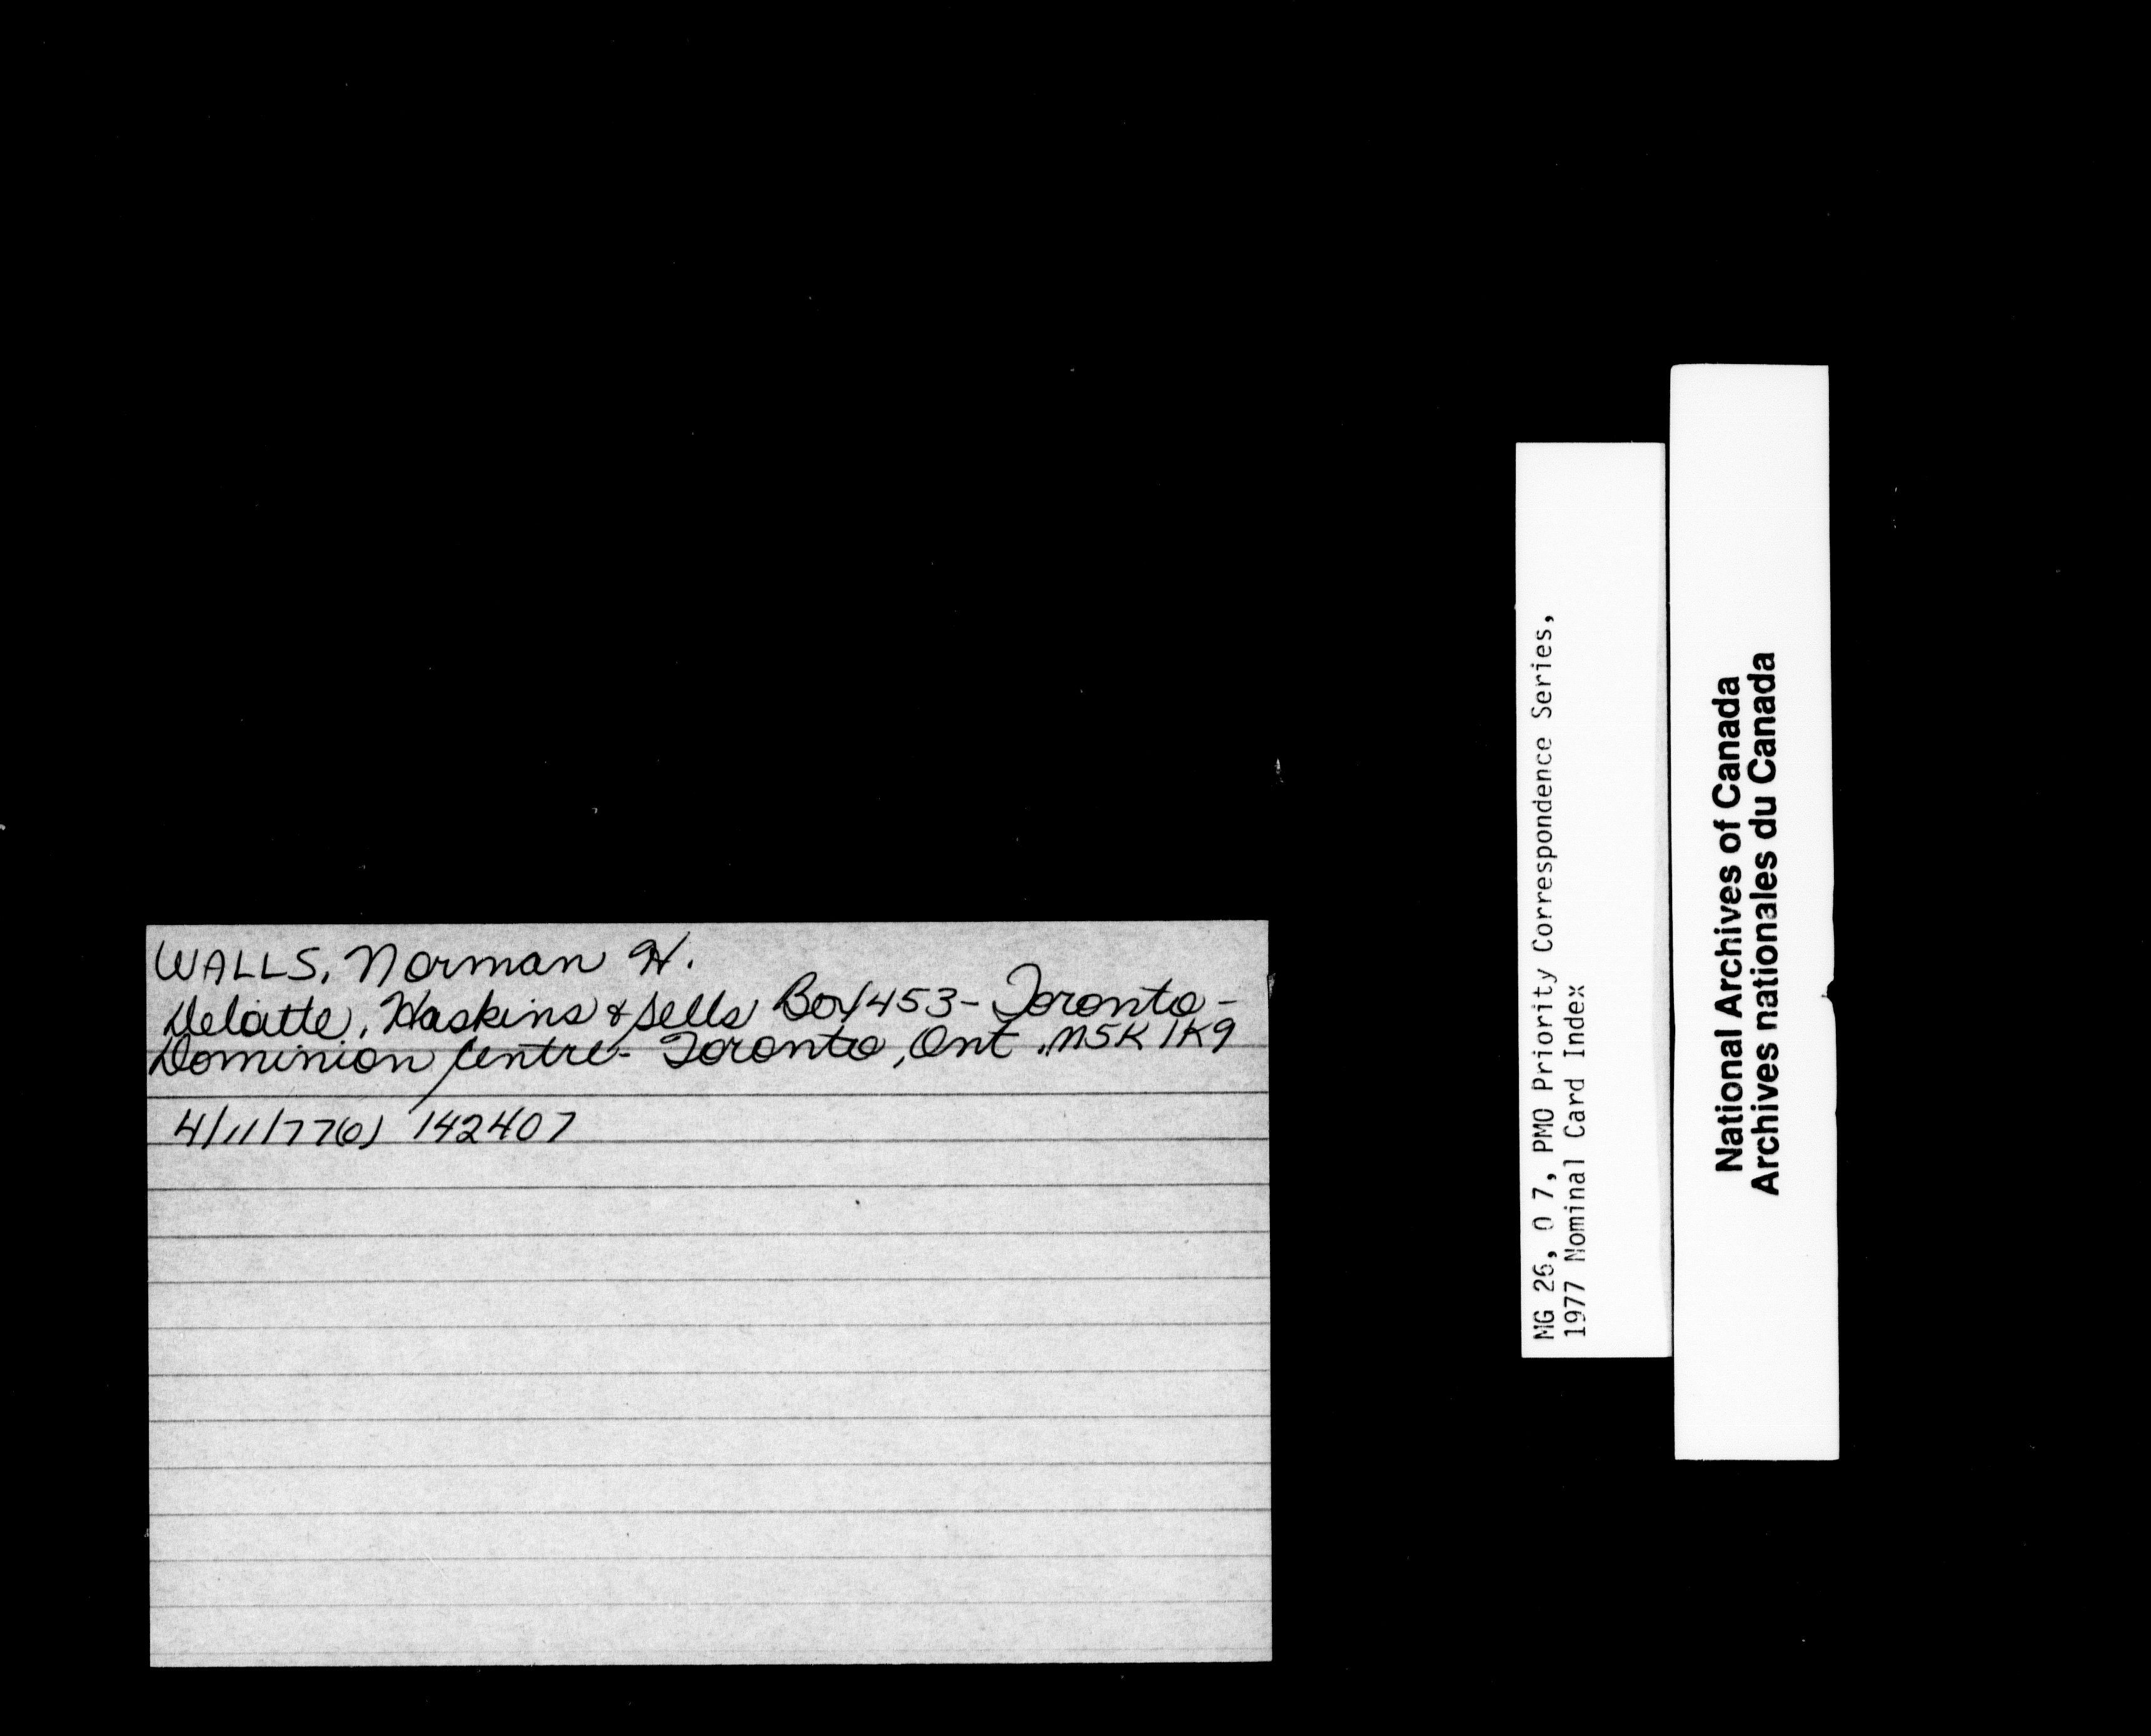 WALLS, Norman H.
Deloitte, Haskins & Sells Box 453 - Toronto -
Dominion Centre - Toronto, Ont. M5K 1K9
4/11/77(o) 142407
MG 26, O 7, PMO Priority Correspondence Series,
1977 Nominal Card Index
National Archives of Canada
Archives nationales du Canada